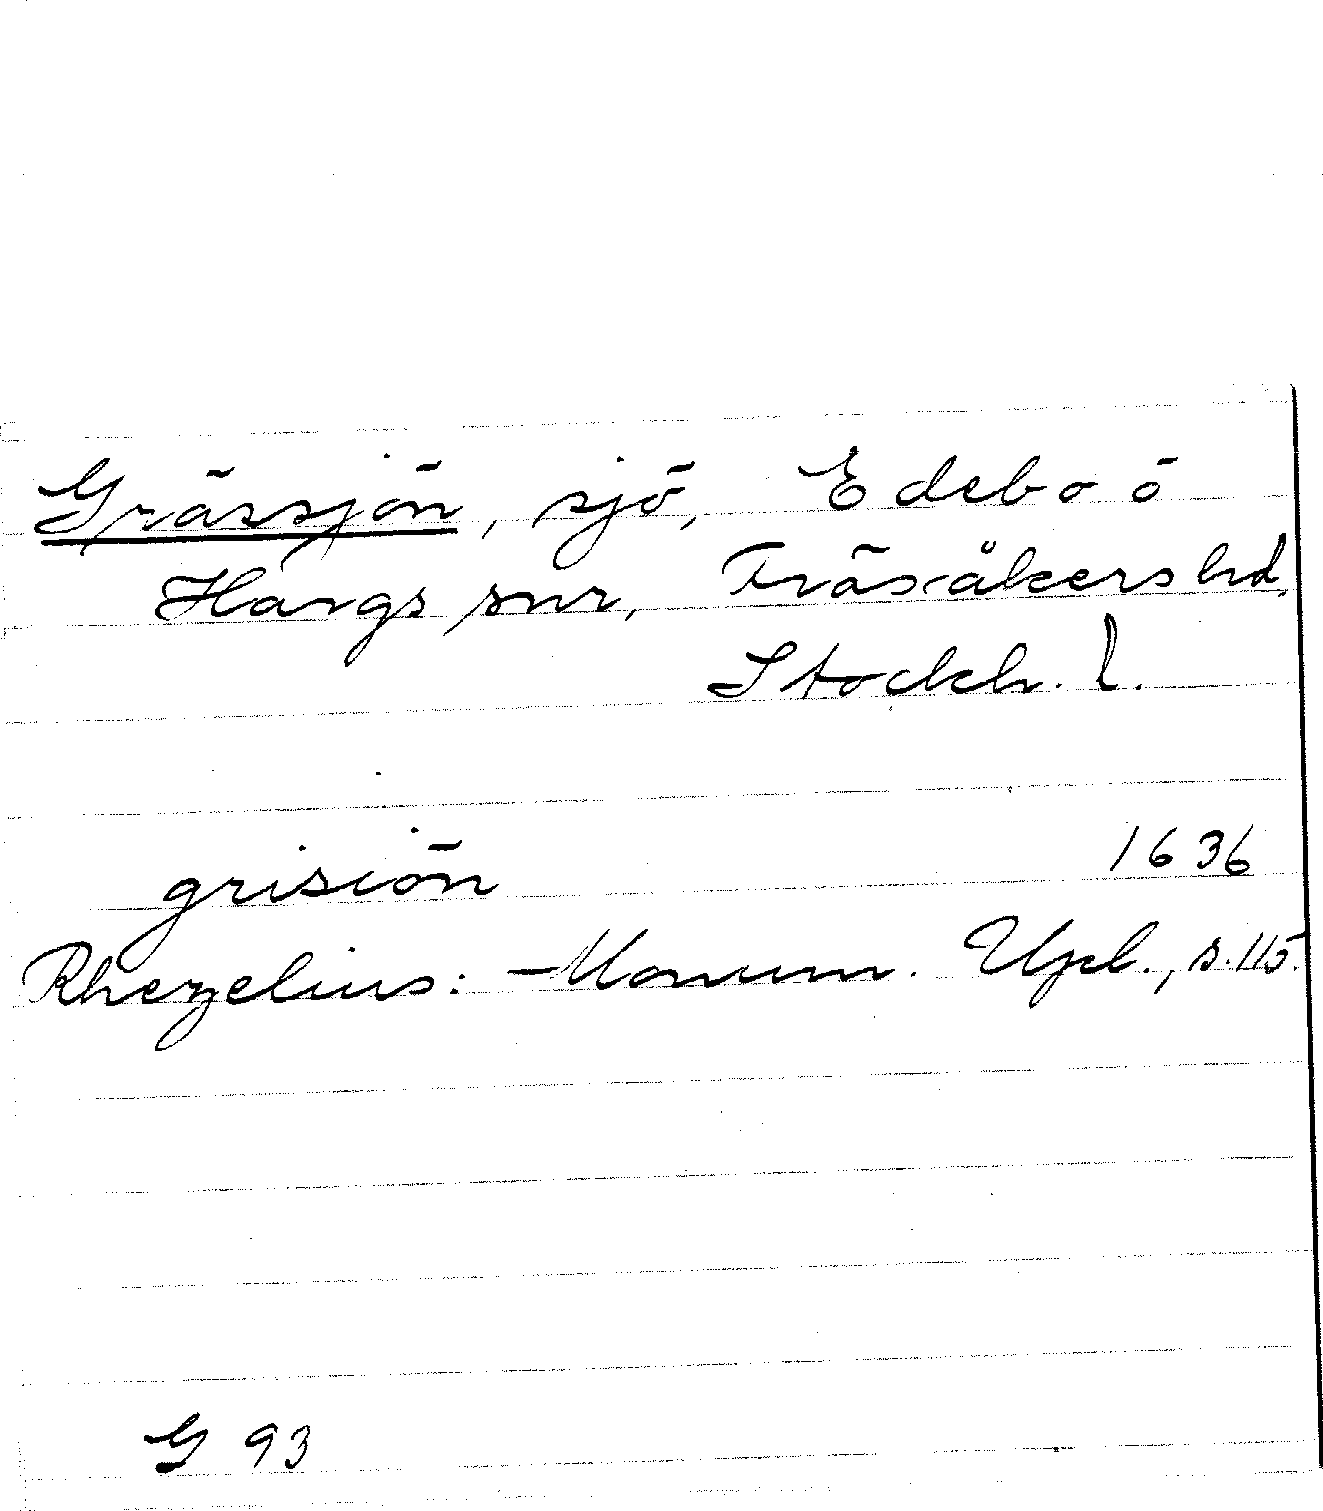 Grässjön, sjö, Edebo o
Hargs snr, Frösåkers hd,
Stockh. l.
grisiön 1636
Rhezelius: Monum. Upl., s. 115.
G 93